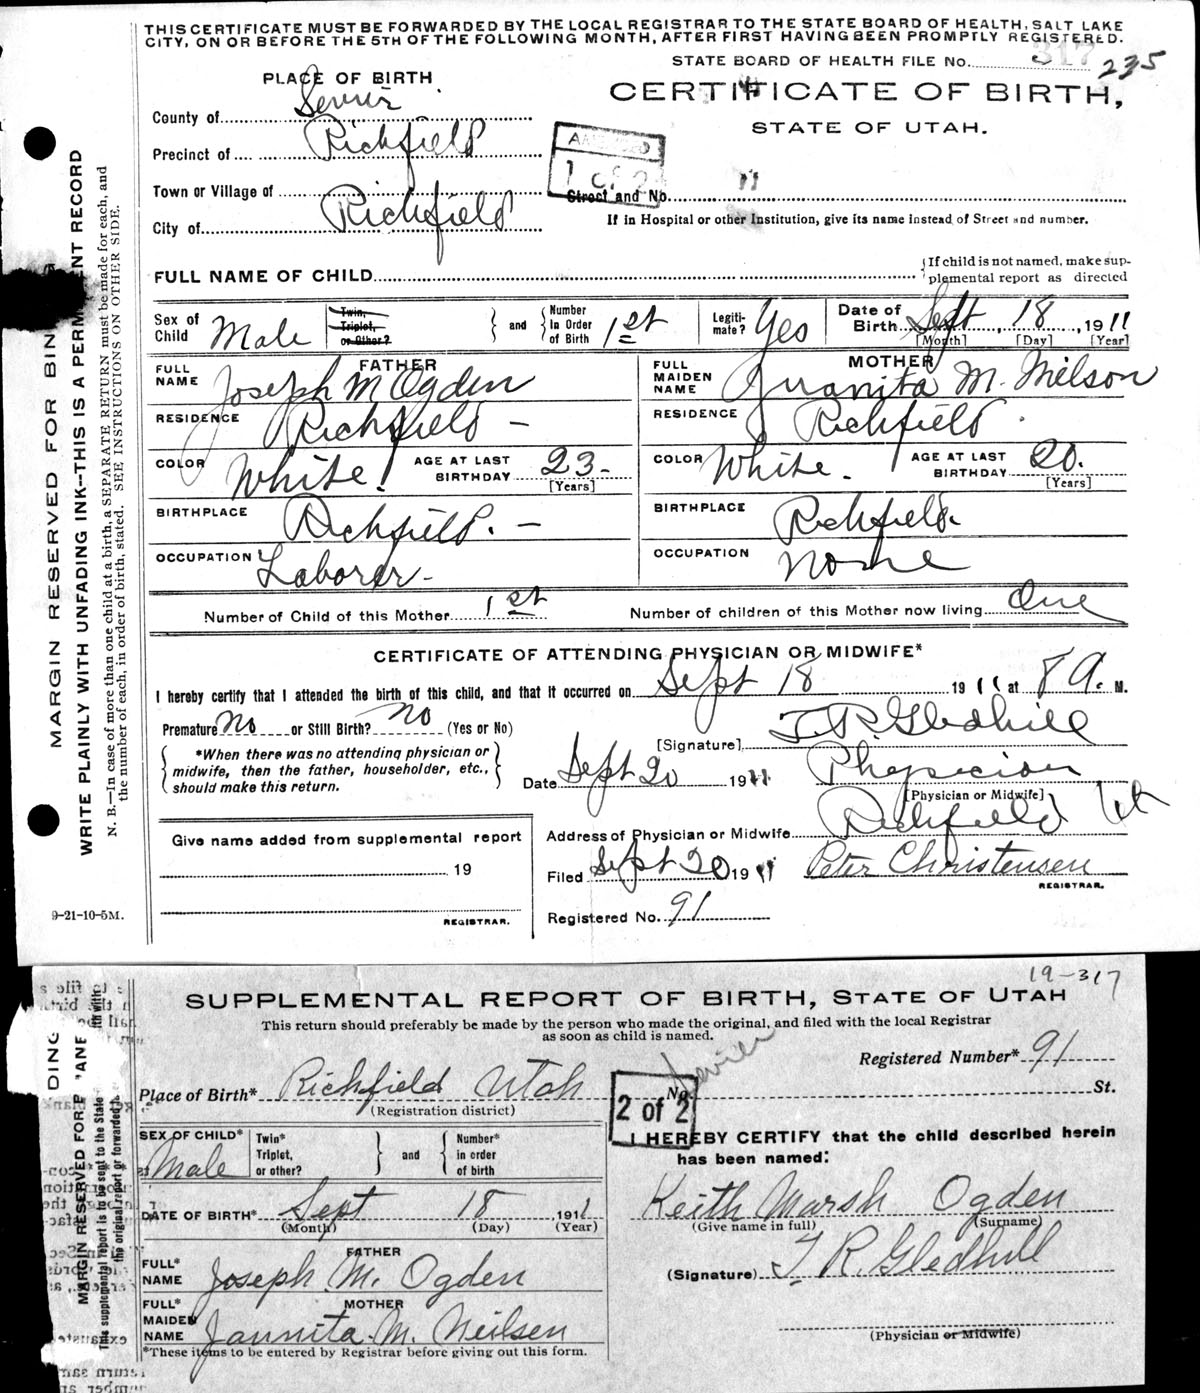 THIS CERTIFICATE MUST BE FORWARDED BY THE LOCAL REGISTRAR TO THE STATE BOARD OF HEALTH, SALT LAKE
CITY, ON OR BEFORE THE 5TH OF THE FOLLOWING MONTH, AFTER FIRST HAVING BEEN PROMPTLY REGISTERED.
STATE BOARD OF HEALTH FILE No. 317 235
PLACE OF BIRTH
CERTIFICATE OF BIRTH,
STATE OF UTAH.
County of Sevier
Precinct of Richfield
AMENDED
1 of 2
Town or Village of
Street and No.
City of Richfield
If in Hospital or other Institution, give its name instead of Street and number.
FULL NAME OF CHILD
If child is not named, make sup-
plemental report as directed
Sex of Child Male
Twin, Triplet, or Other?
and
Number In Order of Birth 1st
Legiti-mate? Yes
Date of Birth Sept, 18, 1911
[Month] [Day] [Year]
FATHER
FULL NAME Joseph M Ogden
RESIDENCE Richfield -
COLOR White.
AGE AT LAST BIRTHDAY 23-
[Years]
BIRTHPLACE Richfield. -
OCCUPATION Laborer-
MOTHER
FULL MAIDEN NAME Juanita M. Nielson
RESIDENCE Richfield.
COLOR White.
AGE AT LAST BIRTHDAY 20.
[Years]
BIRTHPLACE Richfield.
OCCUPATION None
Number of Child of this Mother 1st
Number of children of this Mother now living One
CERTIFICATE OF ATTENDING PHYSICIAN OR MIDWIFE*
I hereby certify that I attended the birth of this child, and that it occurred on Sept 18 1911 at 8 A. M.
Premature No or Still Birth? no (Yes or No)
[Signature] T. R. Gledhill
*When there was no attending physician or
midwife, then the father, householder, etc.,
should make this return.
Date Sept 20 1911
Physician
[Physician or Midwife]
Give name added from supplemental report
19
REGISTRAR.
Address of Physician or Midwife Richfield Ut
Filed Sept 20 1911 Peter Christensen
REGISTRAR.
Registered No. 91
9-21-10-5M.
MARGIN RESERVED FOR BIN
WRITE PLAINLY WITH UNFADING INK--THIS IS A PERM ENT RECORD
N. B.—In case of more than one child at a birth, a SEPARATE RETURN must be made for each, and
the number of each, in order of birth, stated. SEE INSTRUCTIONS ON OTHER SIDE.
19-317
SUPPLEMENTAL REPORT OF BIRTH, STATE OF UTAH
This return should preferably be made by the person who made the original, and filed with the local Registrar
as soon as child is named.
Registered Number* 91
Place of Birth* Richfield Utah
(Registration district)
Sevier
No. St.
2 of 2
SEX OF CHILD* Male
Twin* Triplet, or other?
and
Number* in order of birth
I HEREBY CERTIFY that the child described herein
has been named:
DATE OF BIRTH* Sept 18 1911
(Month) (Day) (Year)
Keith Marsh Ogden
(Give name in full) (Surname)
FATHER
FULL* NAME Joseph M. Ogden
(Signature) T R. Gledhill
MOTHER
FULL* MAIDEN NAME Jannita M. Neilsen
(Physician or Midwife)
*These items to be entered by Registrar before giving out this form.
MARGIN RESERVED FOR
DING
The supplemental report is to be sent to the State
the original report or forwarded